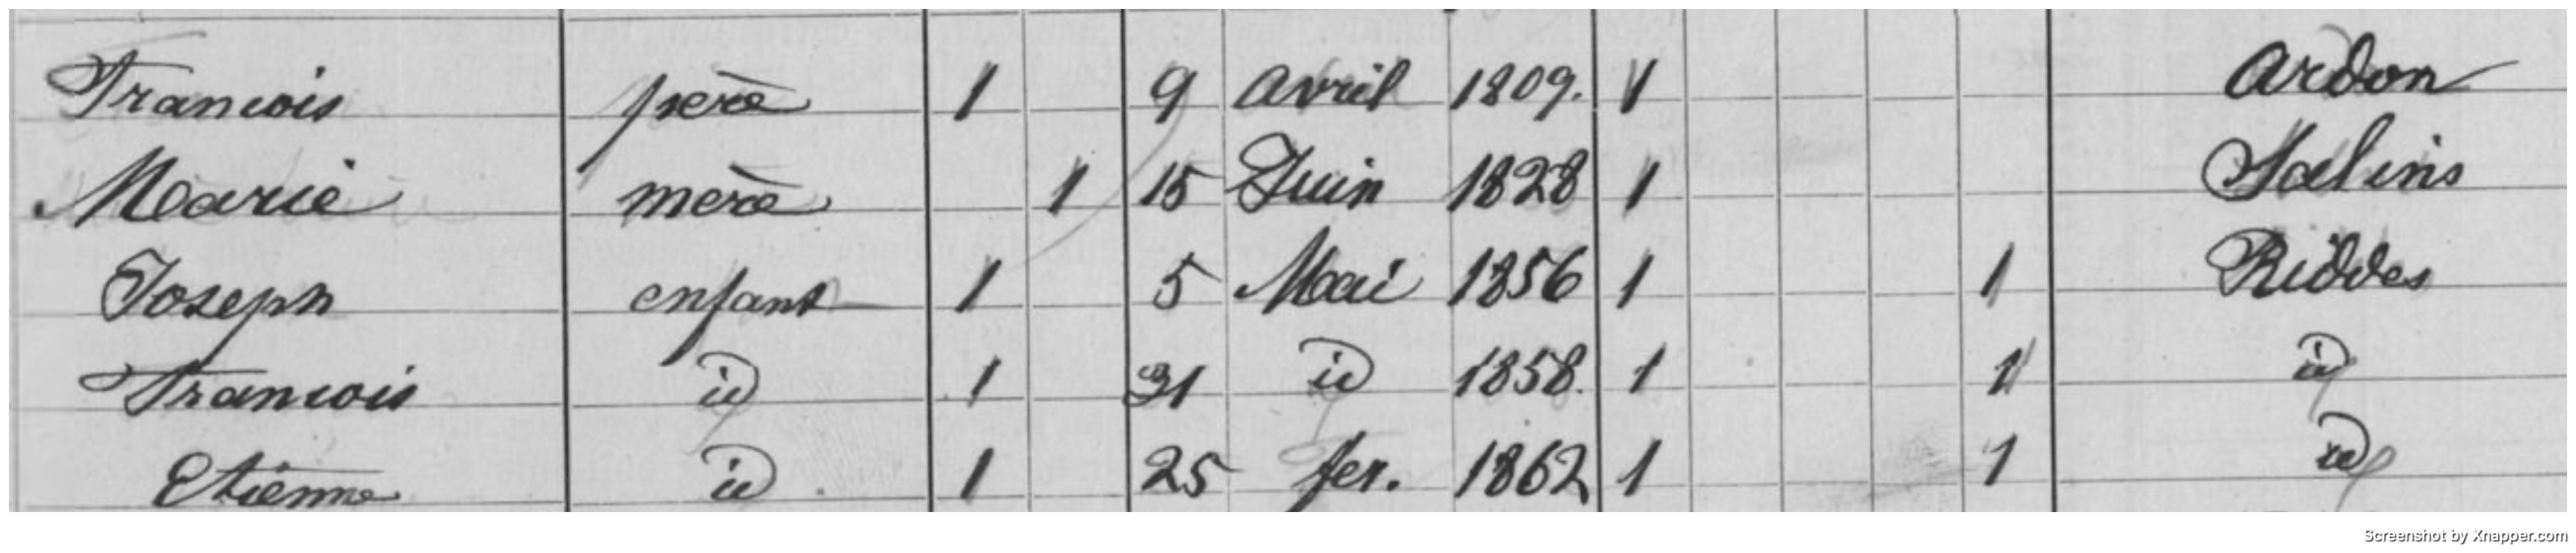 Francois père 1 9 avril 1809. 1 Ardon
Marie mère 1 15 Juin 1828 1 Salins
Joseph enfant 1 5 Mai 1856 1 1 Riddes
Francois id 1 31 id 1858. 1 1 id
Etienne id 1 25 fev. 1862 1 1 id
Screenshot by Xnapper.com